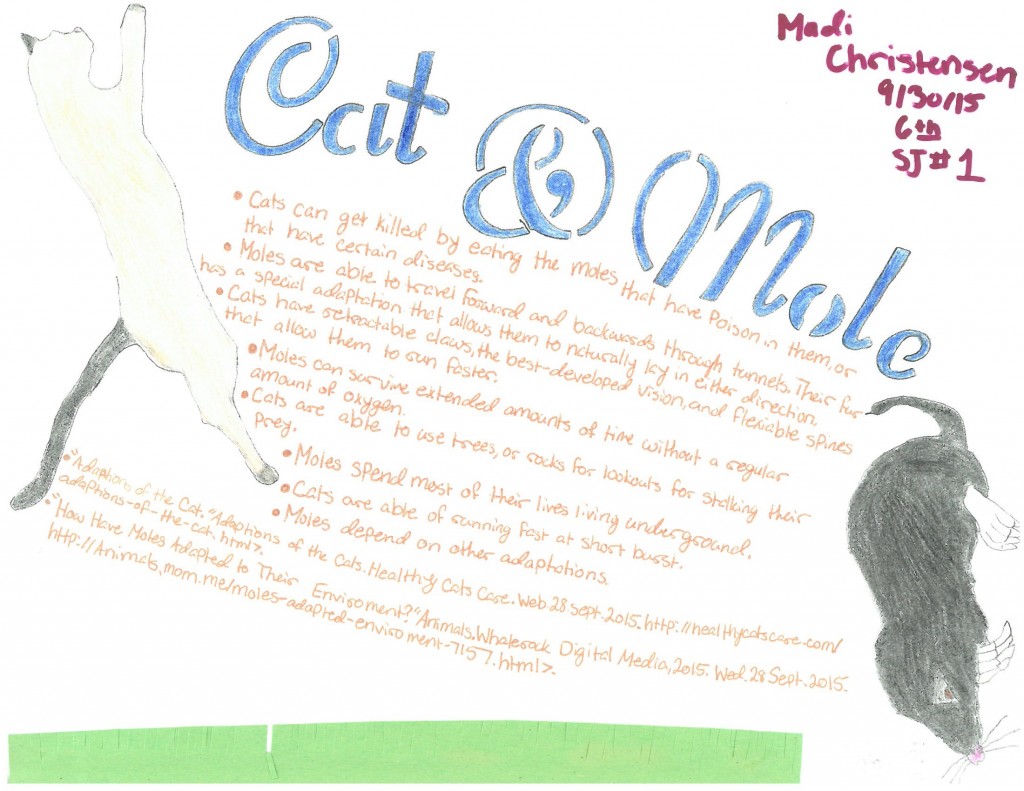 Cat & Mole
Madi
Christensen
9/30/15
6th
SJ# 1
• Cats can get killed by eating the moles that have poison in them, or
that have certain diseases.
• Moles are able to travel forward and backwards through tunnels. Their fur
has a special adaptation that allows them to naturally lay in either direction.
• Cats have retractable claws, the best-developed vision, and flexiable spines
that allow them to run faster.
• Moles can survive extended amounts of time without a regular
amount of oxygen.
• Cats are able to use trees, or rocks for lookouts for stalking their
prey.
• Moles spend most of their lives living underground.
• Cats are able of running fast at short burst.
• Moles depend on other adaptations.
• "Adaptions of the Cat. "Adaptions of the Cats. Healthy Cats Care. Web. 28 Sept. 2015. http://healthycatscare.com/
adaptions-of-the-cat.html>.
• "How Have Moles Adapted to Their Enviroment?" Animals. Whalerock Digital Media, 2015. Wed. 28 Sept. 2015.
http://Animals.mom.me/moles-adapted-enviroment-7157.html>.